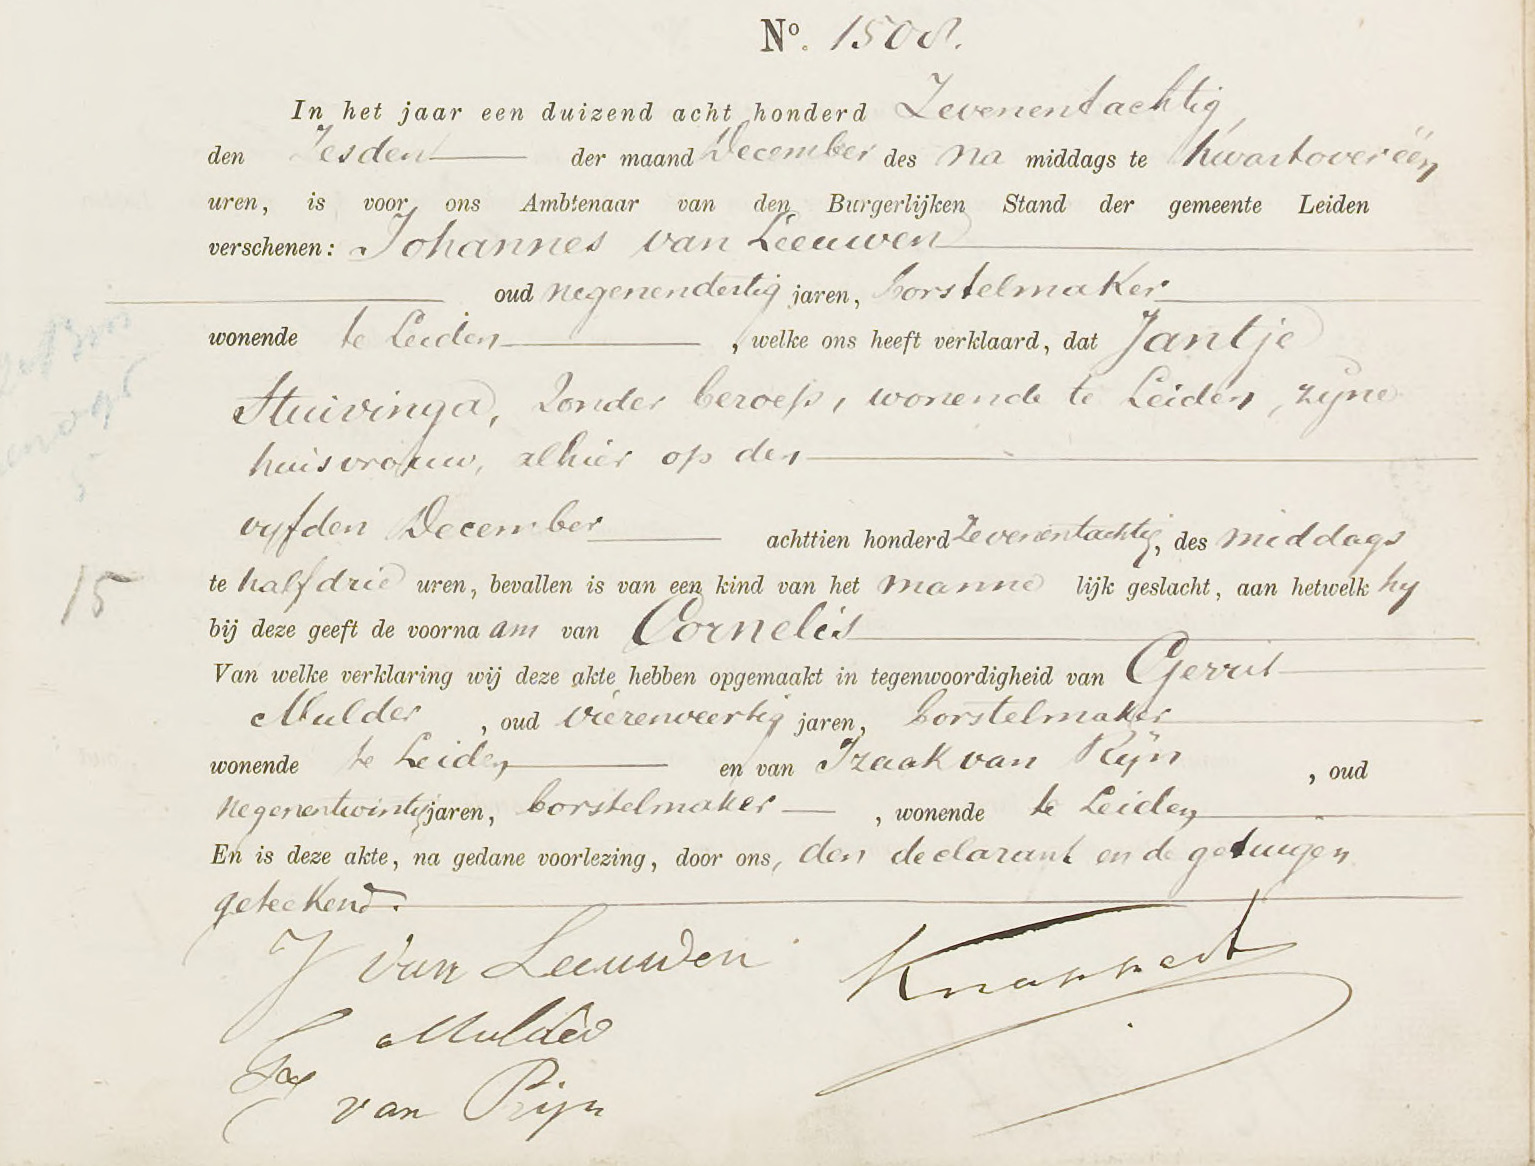 No. 1508.
In het jaar een duizend acht honderd Zevenentachtig,
den Zesden der maand December des na middags te Kwartovereen
uren, is voor ons Ambtenaar van den Burgerlijken Stand der gemeente Leiden
verschenen: Johannes van Leeuwen
oud negenendertig jaren, borstelmaker
wonende te Leiden, welke ons heeft verklaard, dat Jantje
Stuivinga, Zonder beroep, wonende te Leiden, zijne
huisvrouw, alhier op den
vyfden December achttien honderd Zevenentachtig, des middags
te half drie uren, bevallen is van een kind van het manne lijk geslacht, aan hetwelk hy
15
bij deze geeft de voorna am van Cornelis
Van welke verklaring wij deze akte hebben opgemaakt in tegenwoordigheid van Gerrit
Mulder, oud vierenveertig jaren, borstelmaker
wonende te Leiden en van Izaak van Rijn, oud
negenentwintig jaren, borstelmaker, wonende te Leiden
En is deze akte, na gedane voorlezing, door ons, den declarant en de getuigen
geteekend.
J van Leeuwen
Knappert
G Mulder
van Rijn